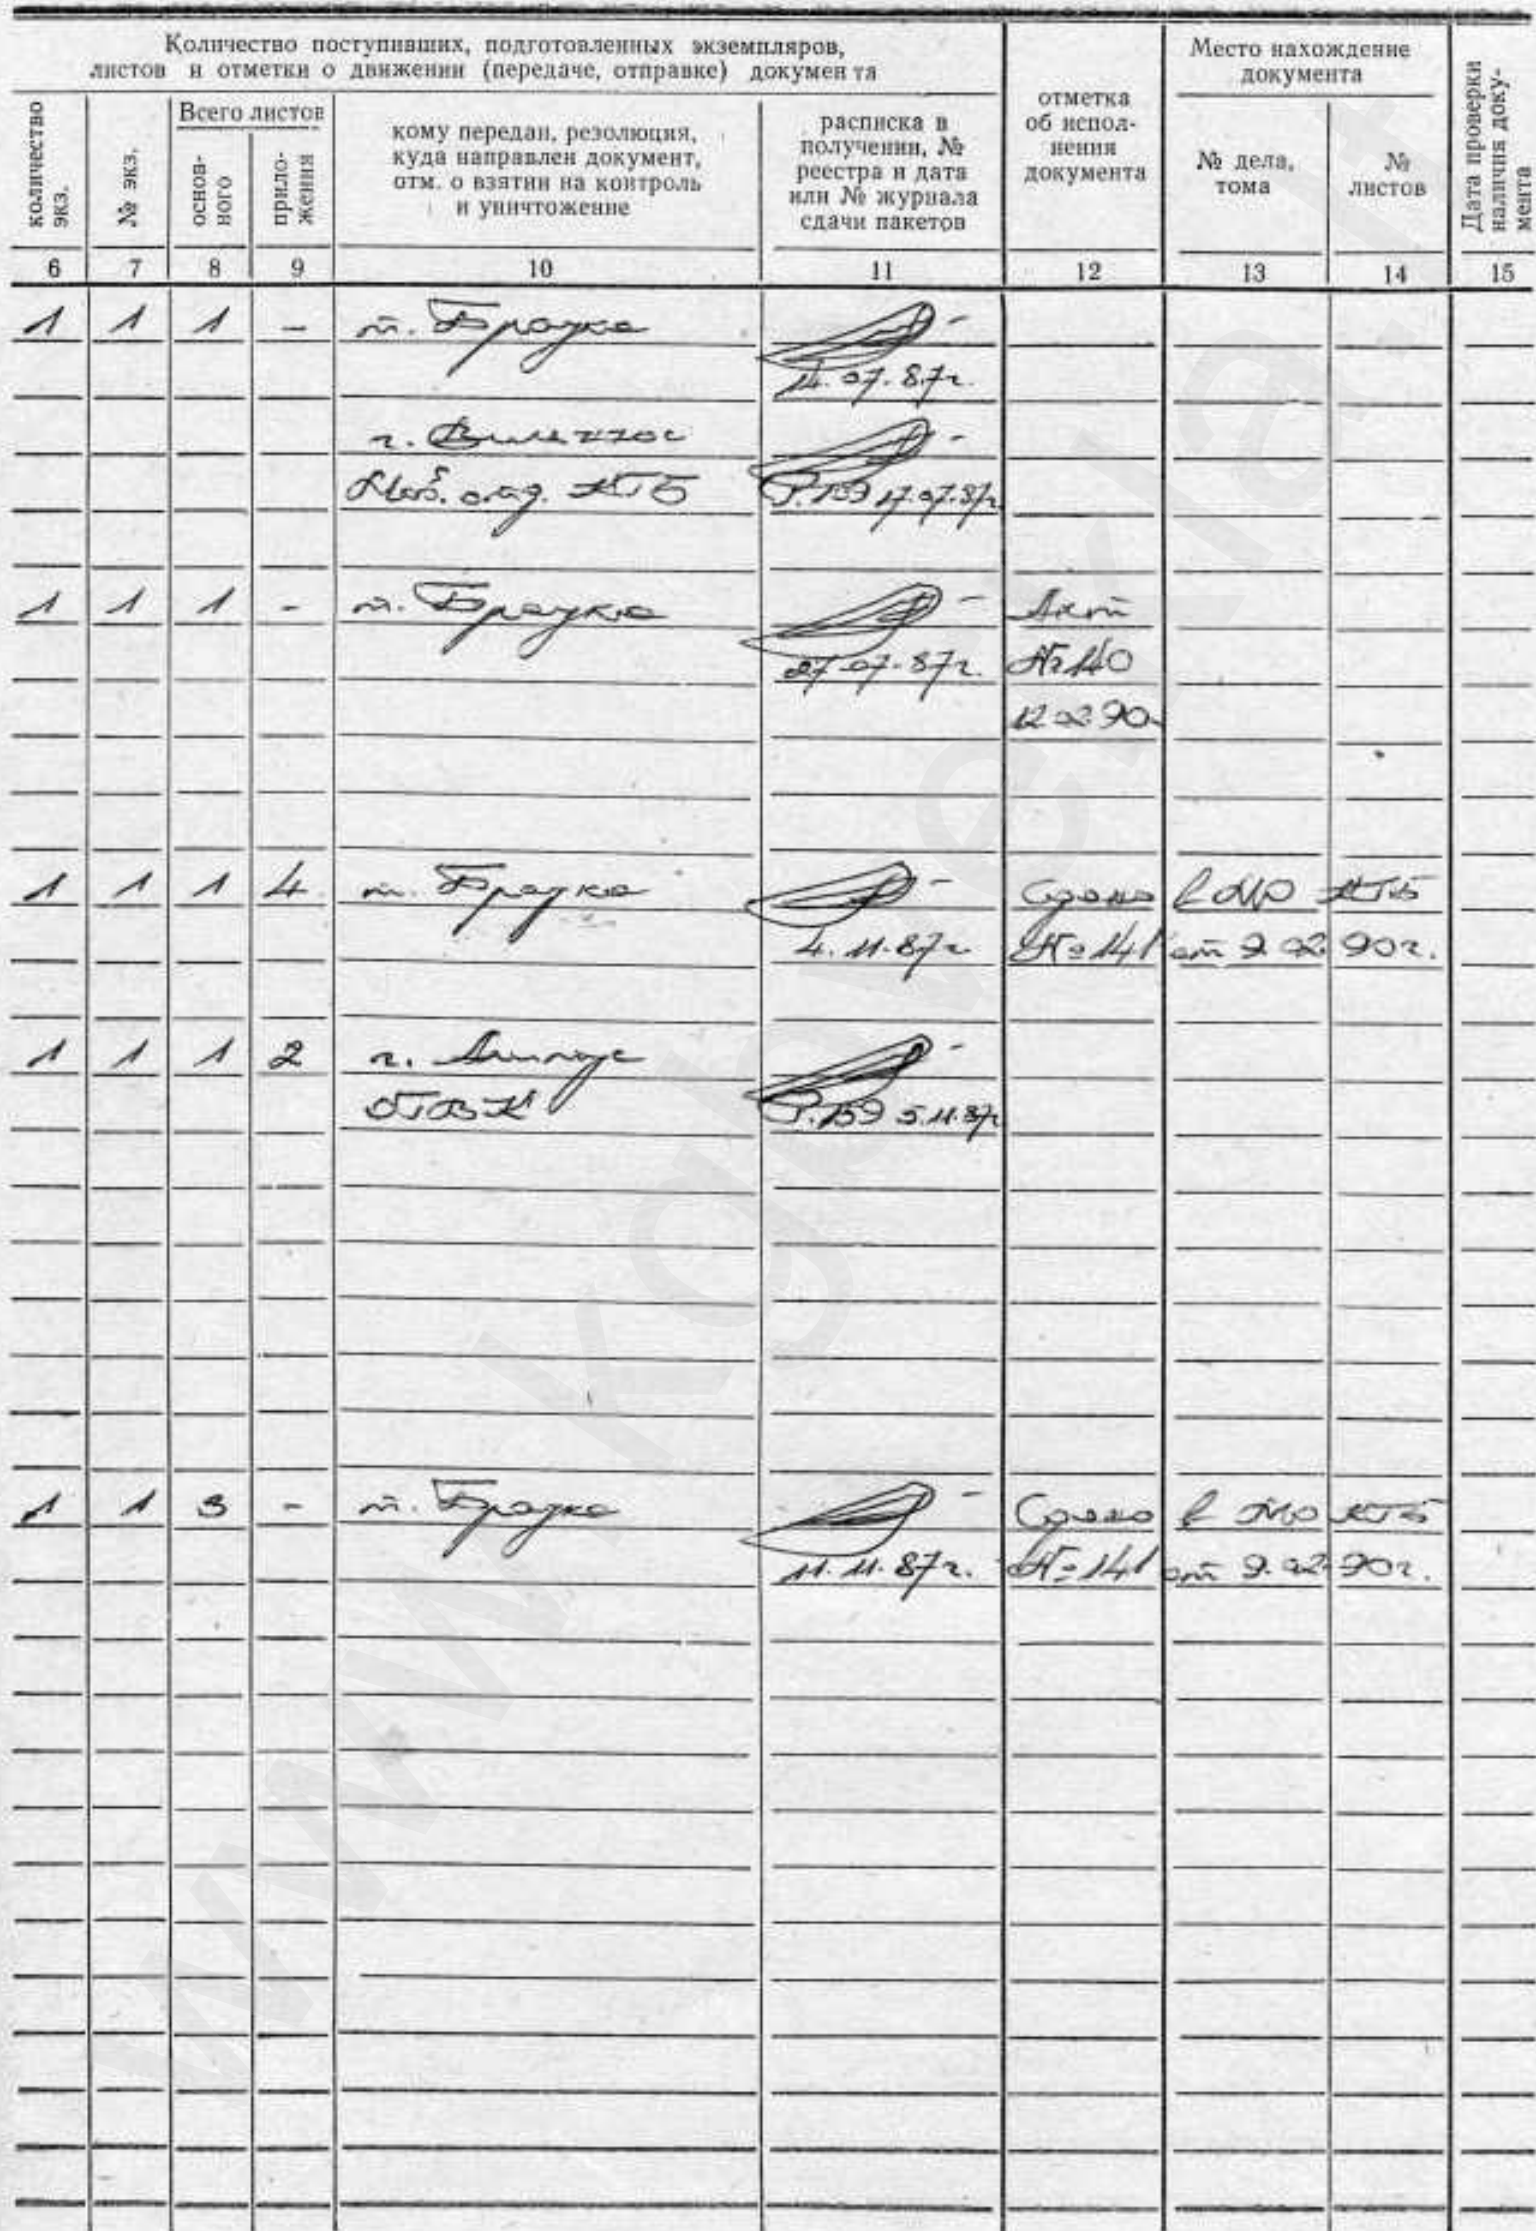 Количество поступивших, подготовленных экземпляров,
листов и отметки о движении (передаче, отправке) документа
количество экз.
№ экз.
Всего листов
основ-
ного
прило-
жения
кому передан, резолюция,
куда направлен документ,
отм. о взятии на контроль
и уничтожение
расписка в
получении, №
реестра и дата
или № журнала
сдачи пакетов
отметка
об испол-
нения
документа
Место нахождение
документа
№ дела,
тома
№
листов
Дата проверки
наличия доку-
мента
6 7 8 9 10 11 12 13 14 15
1 1 1 - т. Брауке
14.07.87г.
г. Вильнюс
Моб. отд. КГБ Р.159 17.07.87г
1 1 1 - т. Брауке Акт
27.07.87г. №140
12.02.90
1 1 1 4 т. Брауке Сдано в МО КГБ
4.11.87г №141 от 9.02.90г.
1 1 1 2 г.
ОГВК Р.159 5.11.87г
1 1 3 - т. Брауке Сдано в МО КГБ
11.11.87г. №141 от 9.02.90г.